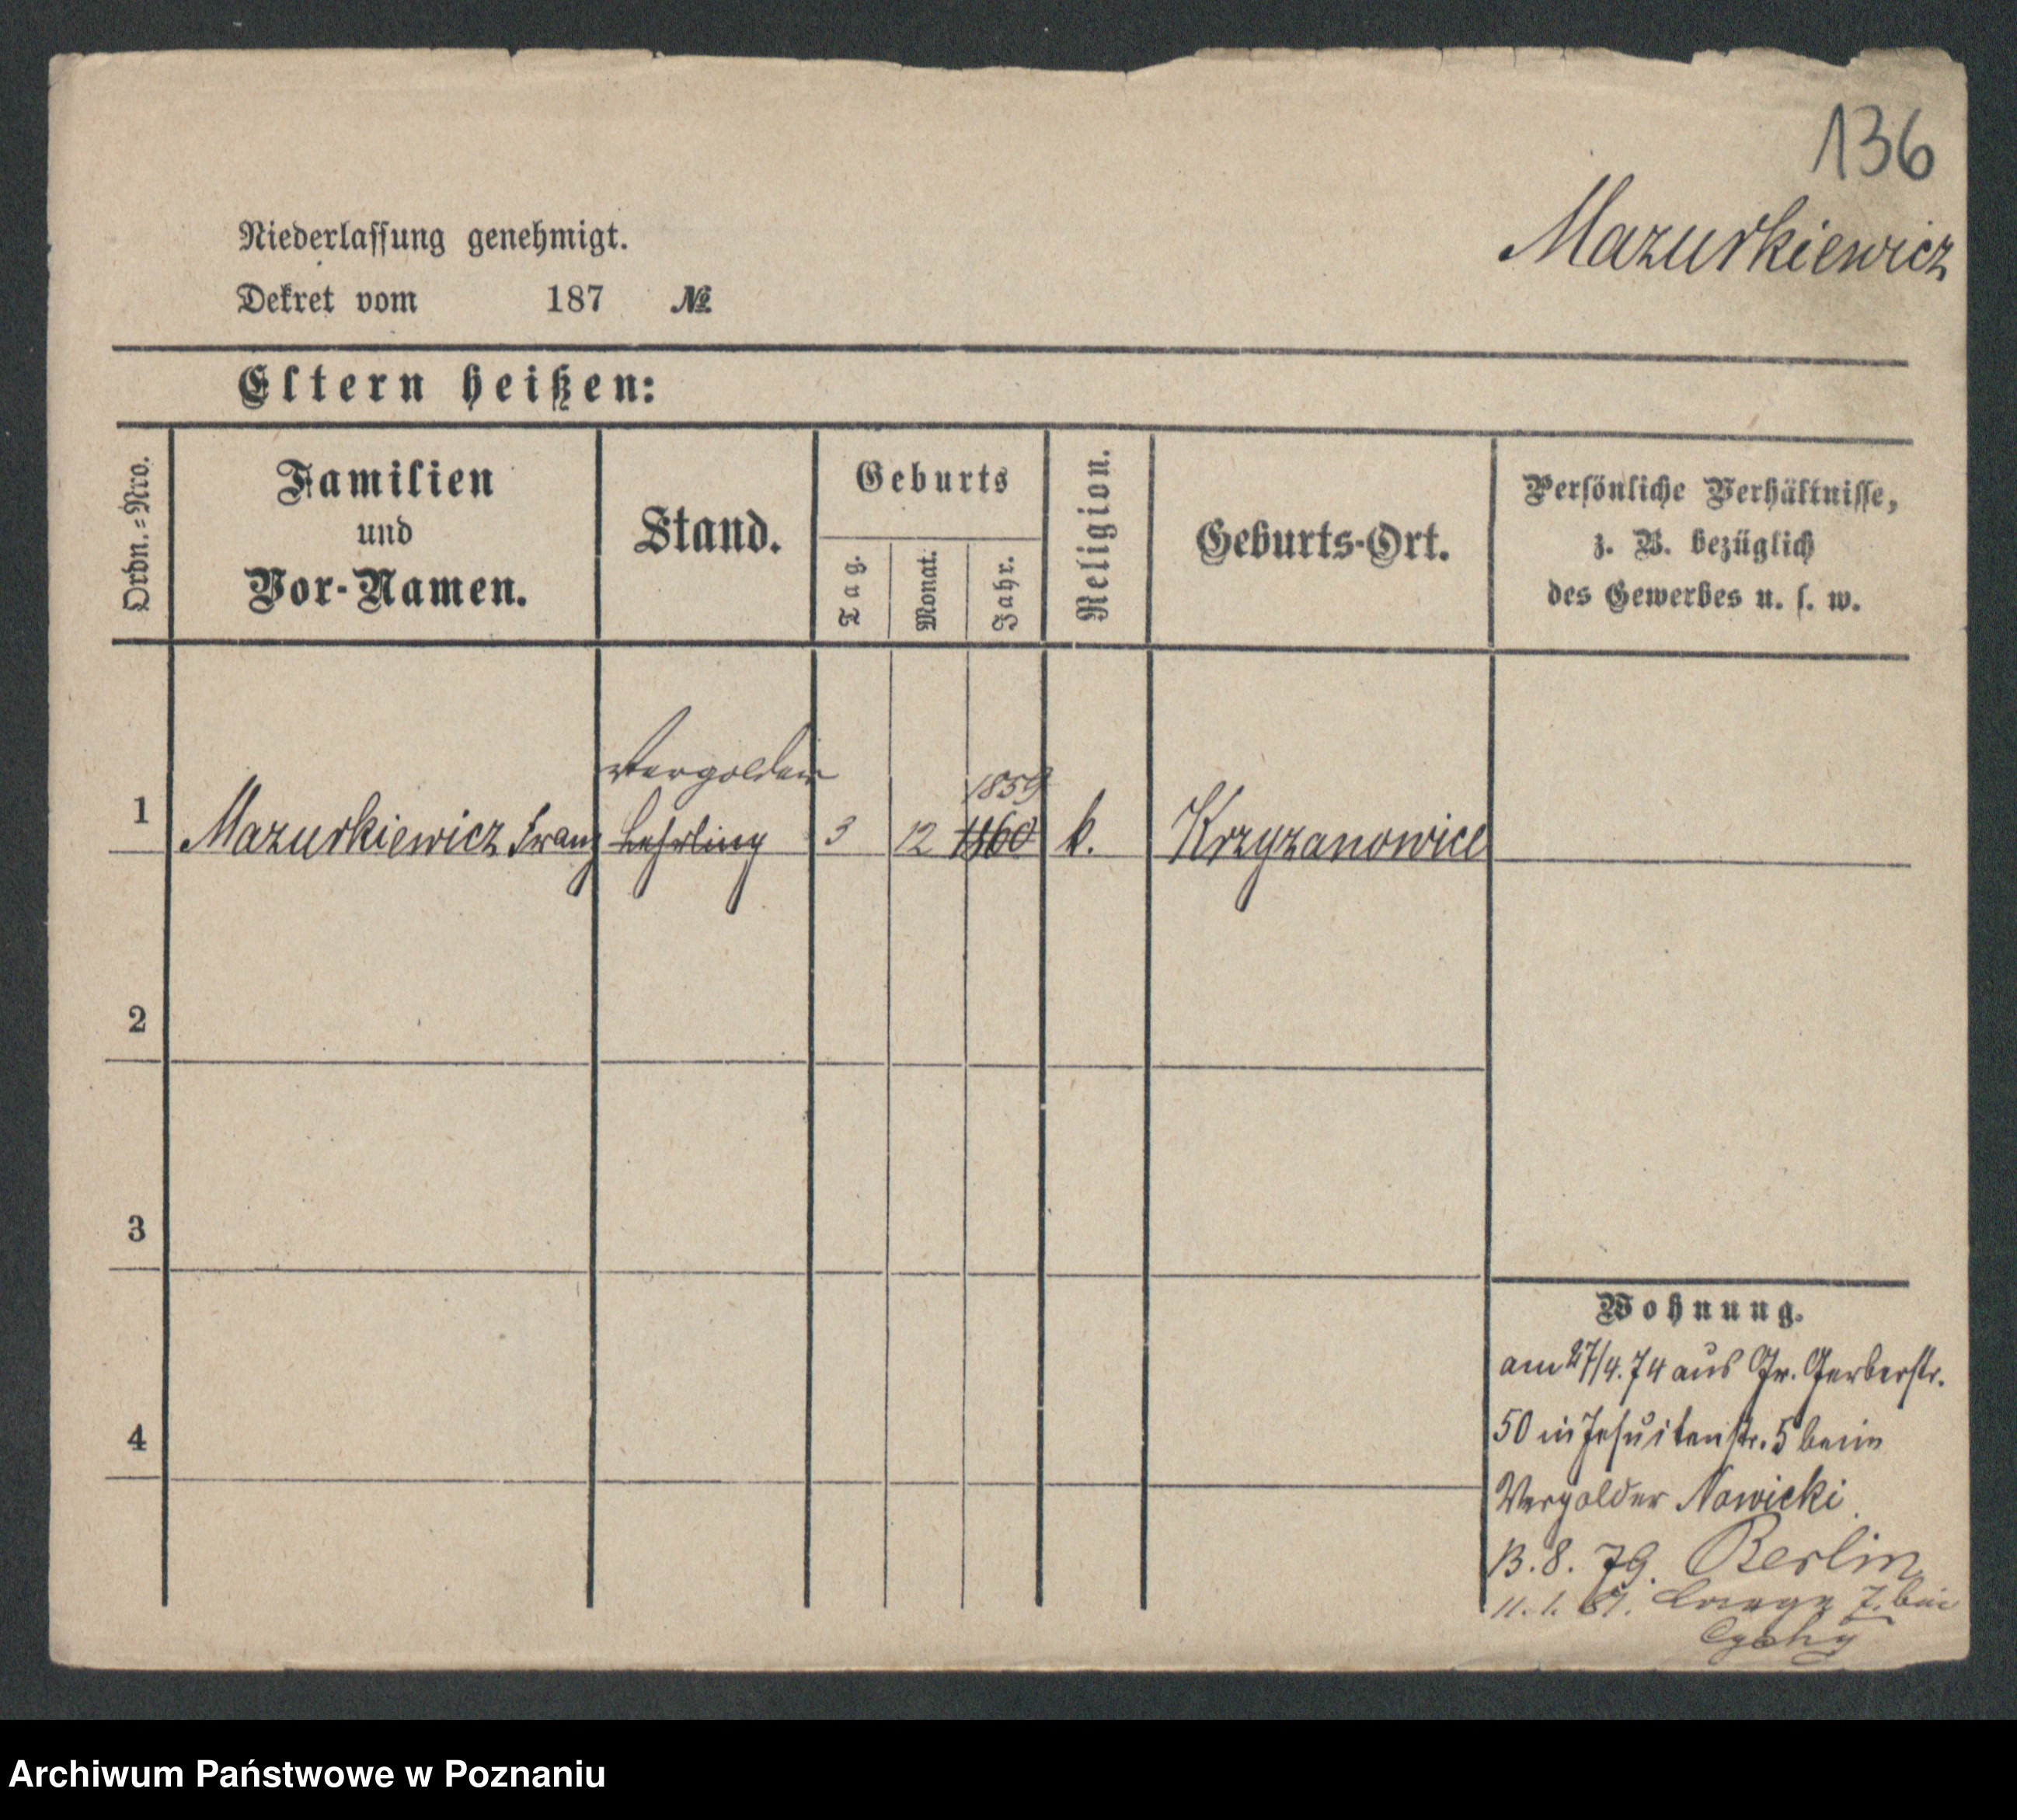 136
Mazurkiewicz
Niederlassung genehmigt.
Dekret vom 187 №
Eltern heißen:
Ordn.=Nro.
Familien
und
Vor-Namen.
Stand.
Geburts
Tag.
Monat.
Jahr.
Religion.
Geburts-Ort.
Persönliche Verhältnisse,
z. B. bezüglich
des Gewerbes u. s. w.
Vergolder
1859
1 Mazurkiewicz Franz Lehrling 3 12 1860 k. Krzyzanowice
2
3
4
Wohnung.
am 27/4.74 aus Gr. Gerberstr.
50 in Jesuitenstr. 5 beim
Vergolder Nowicki
13.8.79. Berlin
11.1.81. 7. bei
Archiwum Państwowe w Poznaniu